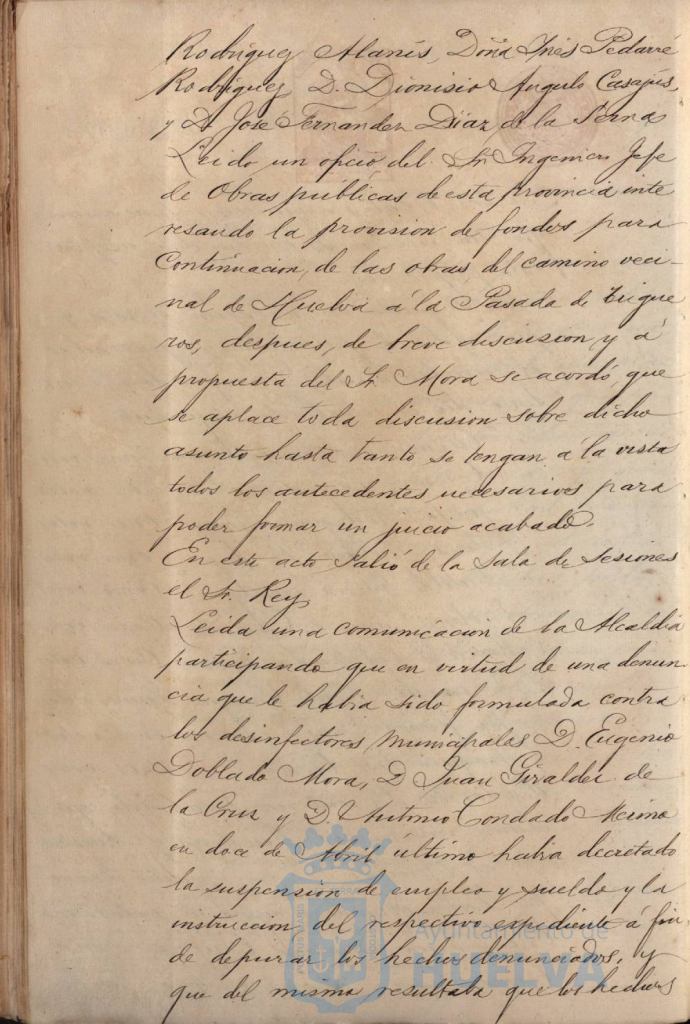 Rodriguez Alanís, Doña Inés Pedarré
Rodriguez, D. Dionisio Angulo Casajús,
y D. José Fernandez Diaz de la Serna
Leido un oficio del Sr. Ingeniero Jefe
de Obras públicas de esta provincia inte
resando la provision de fondos para
Continuacion, de las obras del camino veci-
nal de Huelva á la Pasada de Trigue
ros, despues, de breve discusion y á
propuesta del Sr. Mora se acordó, que
se aplace toda discusion sobre dicho
asunto hasta tanto se tengan á la vista
todos los antecedentes necesarios para
poder formar un juicio acabado.
En este acto salió de la sala de sesiones
el Sr. Rey
Leida una comunicacion de la Alcaldia
participando que en virtud de una denun-
cia que le habia sido formulada contra
los desinfectores municipales D. Eugenio
Doblado Mora, D Juan Giraldez de
la Cruz y D. Antonio Condado
en doce de Abril último habia decretado
la suspensión de empleo y sueldo y la
instruccion del respectivo expediente á fin
de depurar los hechos denunciados, y
que del mismo resultaba que los hechos
Ayuntamiento de
HUELVA